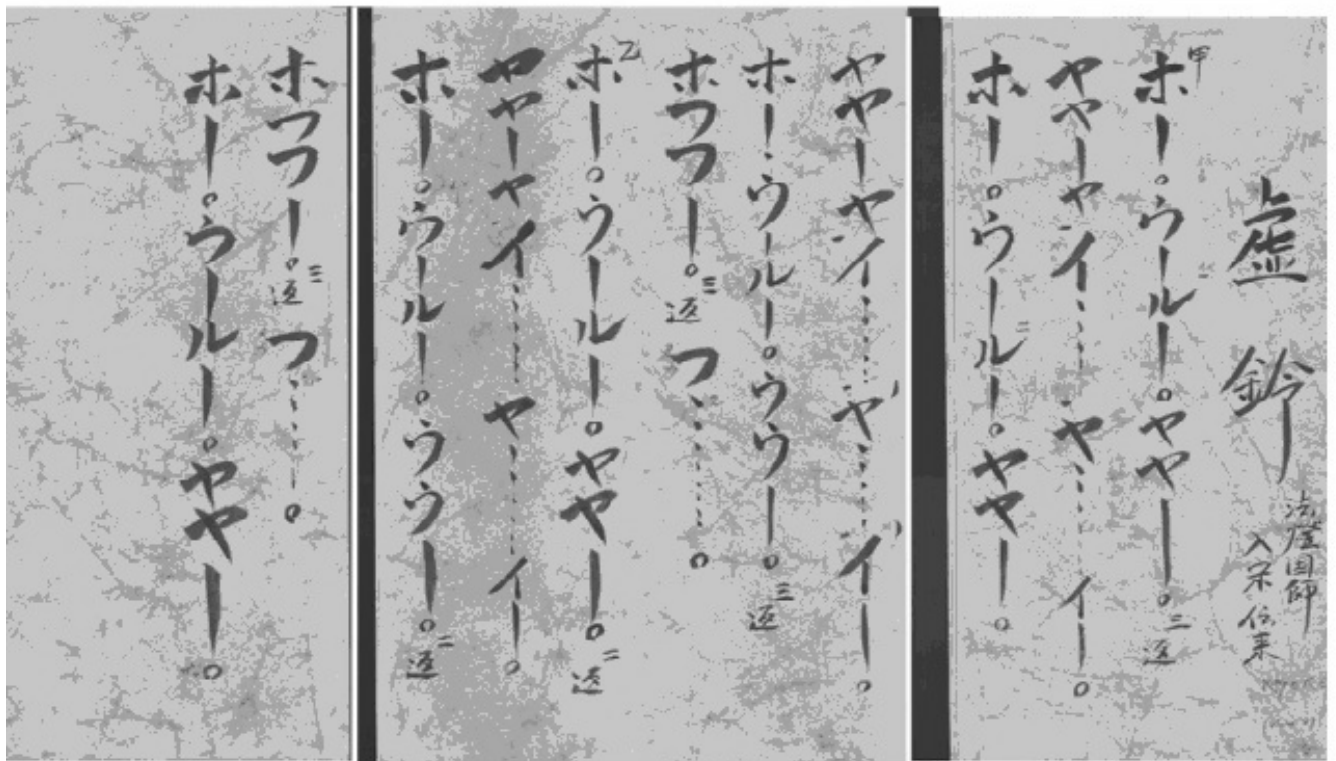 虚鈴
法燈国師
入宋伝来
甲
ホー。ウールー。ヤヤー。二返
ヤヤーヤイ……ヤ……イー。
ホー。ウールー。ヤヤー。
ヤヤーヤイ……ヤ……イー。
ホー。ウールー。ウウー。三返
ホフフー。三返 フ……。
乙
ホー。ウールー。ヤヤー。二返
ヤヤーヤイ……ヤ……イー。
ホー。ウールー。ウウー。二返
ホフフー。三返 フ……。
ホー。ウールー。ヤヤー。